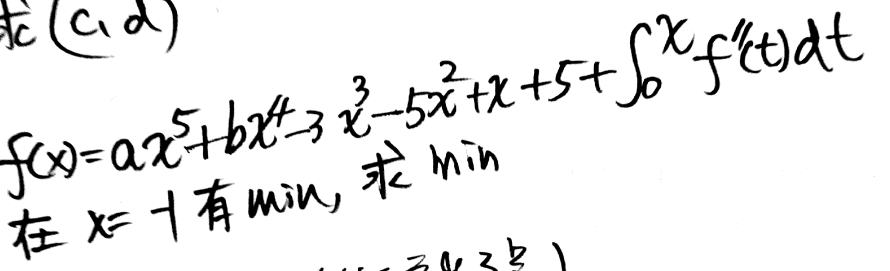 求(c,d)
f(x)=ax⁵+bx⁴-3x³-5x²+x+5+∫₀ˣf''(t)dt
在 x=-1有min, 求 min